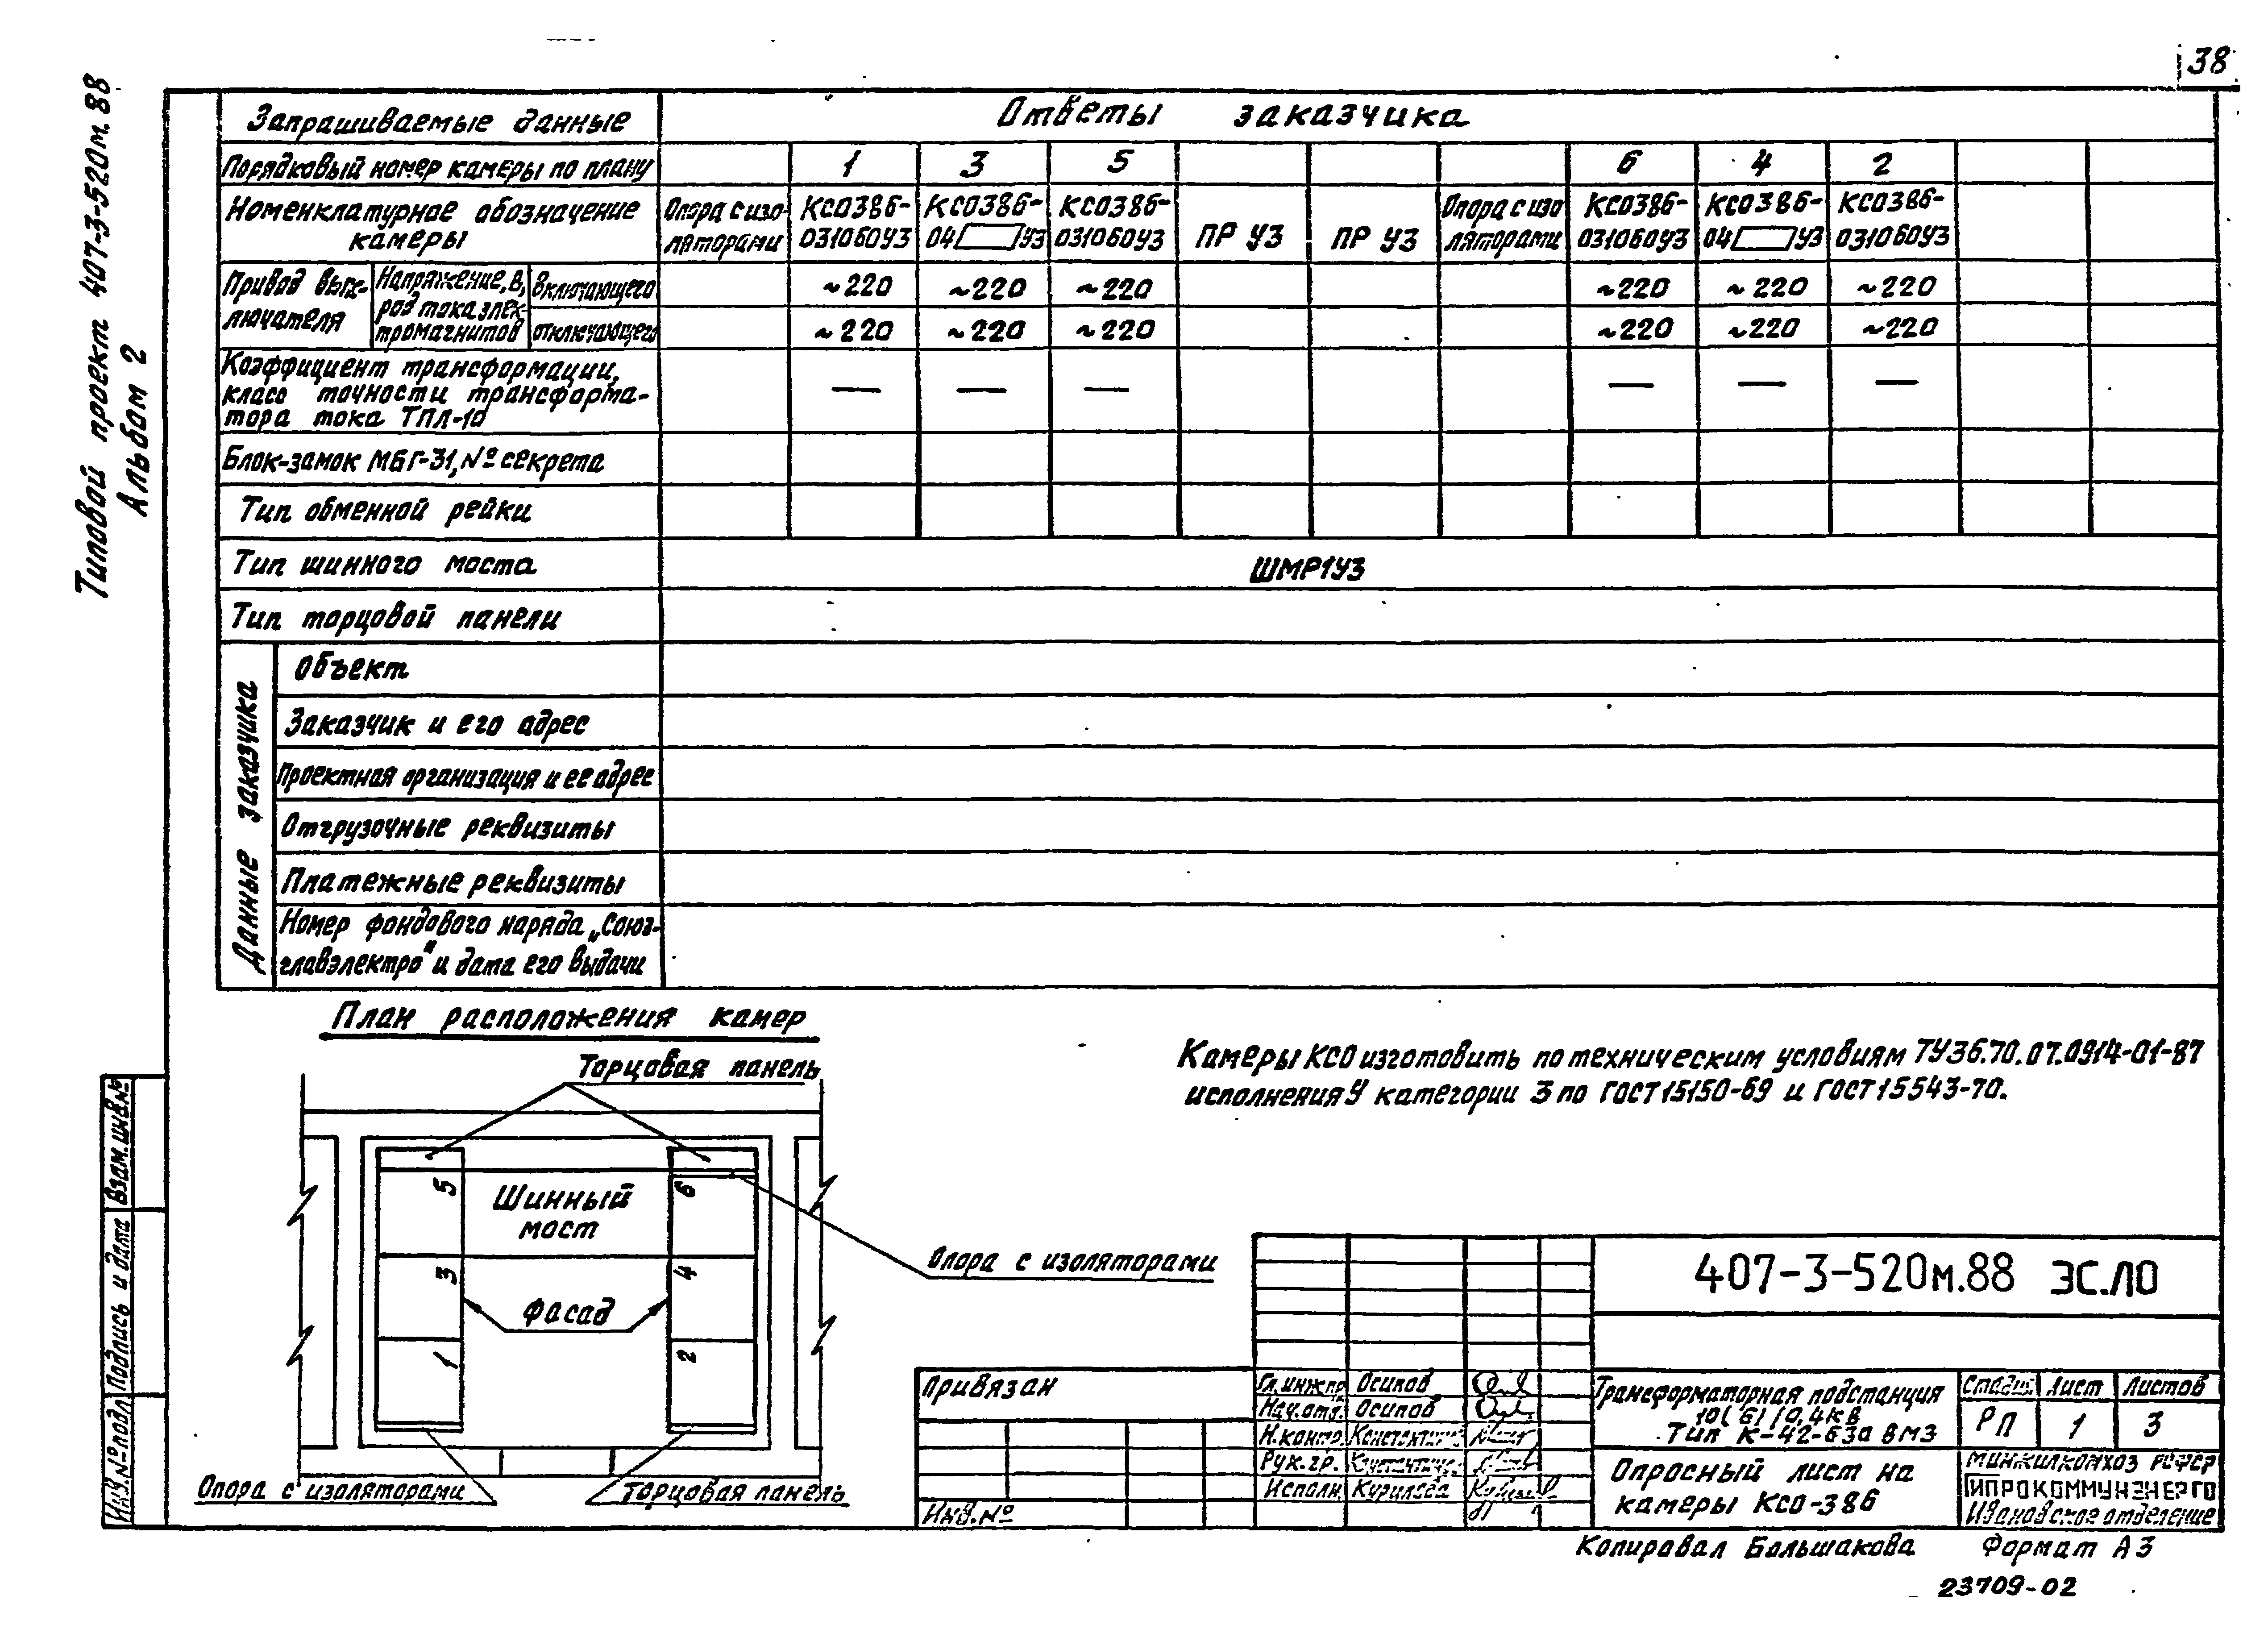 38
Типовой проект 407-3-520м.88
Альбом 2
Запрашиваемые данные
Ответы заказчика
Порядковый номер камеры по плану
1 3 5 6 4 2
Номенклатурное обозначение камеры
Опора с изо-
ляторами
КСО386-
03106ОУ3
КСО386-
04 У3
КСО386-
03106ОУ3
ПР У3
ПР У3
Опора с изо
ляторами
КСО386-
03106ОУ3
КСО386-
04 У3
КСО386-
03106ОУ3
Привод вык-
лючателя
Напряжение, В,
род тока элек-
тромагнитов
включающего
~220 ~220 ~220 ~220 ~220 ~220
отключающего
~220 ~220 ~220 ~220 ~220 ~220
Коэффициент трансформации,
класс точности трансформа-
тора тока ТПЛ-10
— — — — — —
Блок-замок МБГ-31, № секрета
Тип обменной рейки
Тип шинного моста
ШМР1У3
Тип торцовой панели
Данные заказчика
Объект
Заказчик и его адрес
Проектная организация и ее адрес
Отгрузочные реквизиты
Платежные реквизиты
Номер фондового наряда „Союз-
главэлектро" и дата его выдачи
План расположения камер
Торцовая панель
5
6
Шинный
мост
3
4
Фасад
1
2
Опора с изоляторами
Опора с изоляторами
Торцовая панель
Камеры КСО изготовить по техническим условиям ТУ36.70.07.0914-01-87
исполнения У категории 3 по ГОСТ 15150-69 и ГОСТ 15543-70.
Взам. инв. №
Подпись и дата
Инв. № подл
Привязан
Инв. №
407-3-520м.88 ЭС.ЛО
Гл. инж. пр. Осипов
Нач. отд. Осипов
Н. контр.
Рук. гр.
Исполн. Курилова
Трансформаторная подстанция
10(6)/0,4кВ
Тип К-42-630 ВМ3
Стадия Лист Листов
РП 1 3
Опросный лист на
камеры КСО-386
Минжилкомхоз РСФСР
ГИПРОКОММУНЭНЕРГО
Ивановское отделение
Копировал Большакова Формат А3
23709-02